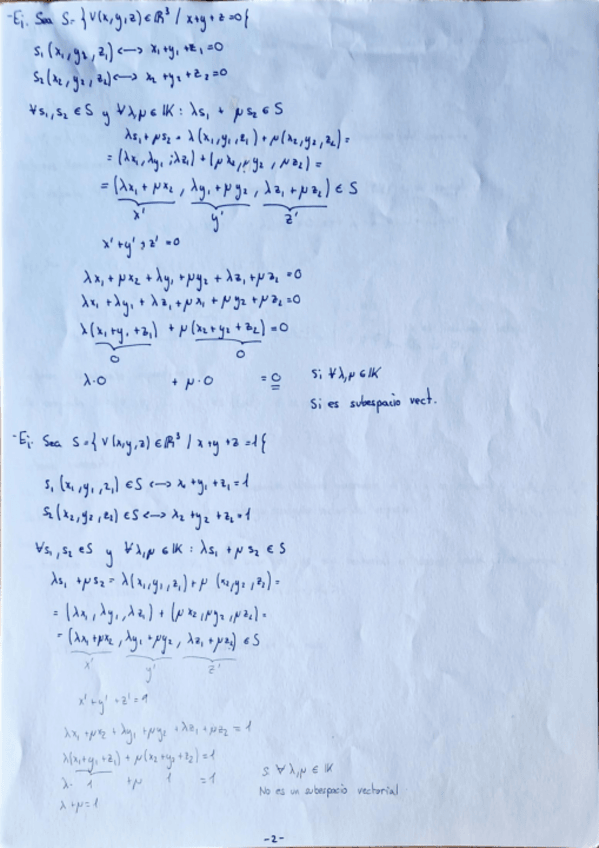 -Ej. Sea S={V(x,y,z)∈ℝ³ / x+y+z=0{
S₁(x₁,y₂,z₁)⟷ x₁+y₁+z₁=0
S₂(x₂,y₂,z₂)⟷ x₂+y₂+z₂=0
∀s₁,s₂∈S y ∀λ,μ∈IK: λs₁+μs₂∈S
λs₁+μs₂=λ(x₁,y₁,z₁)+μ(x₂,y₂,z₂)=
=(λx₁,λy₁,λz₁)+(μx₂,μy₂,μz₂)=
=(λx₁+μx₂, λy₁+μy₂, λz₁+μz₂)∈S
x' y' z'
x'+y'+z'=0
λx₁+μx₂+λy₁+μy₂+λz₁+μz₂=0
λx₁+λy₁+λz₁+μx₁+μy₂+μz₂=0
λ(x₁+y₁+z₁)+μ(x₂+y₂+z₂)=0
0 0
λ·0 +μ·0 =0 Si ∀λ,μ∈IK
Si es subespacio vect.
-Ej. Sea S={V(x,y,z)∈ℝ³ / x+y+z=1{
S₁(x₁,y₁,z₁)∈S⟷ x₁+y₁+z₁=1
S₂(x₂,y₂,z₂)∈S⟷ x₂+y₂+z₂=1
∀s₁,s₂∈S y ∀λ,μ∈IK: λs₁+μs₂∈S
λs₁+μs₂=λ(x₁,y₁,z₁)+μ(x₂,y₂,z₂)=
=(λx₁,λy₁,λz₁)+(μx₂,μy₂,μz₂)=
=(λx₁+μx₂, λy₁+μy₂, λz₁+μz₂)∈S
x' y' z'
x'+y'+z'=1
λx₁+μx₂+λy₁+μy₂+λz₁+μz₂=1
λ(x₁+y₁+z₁)+μ(x₂+y₂+z₂)=1
λ· 1 +μ 1 =1 Si ∀λ,μ∈IK
λ+μ=1 No es un subespacio vectorial
-2-